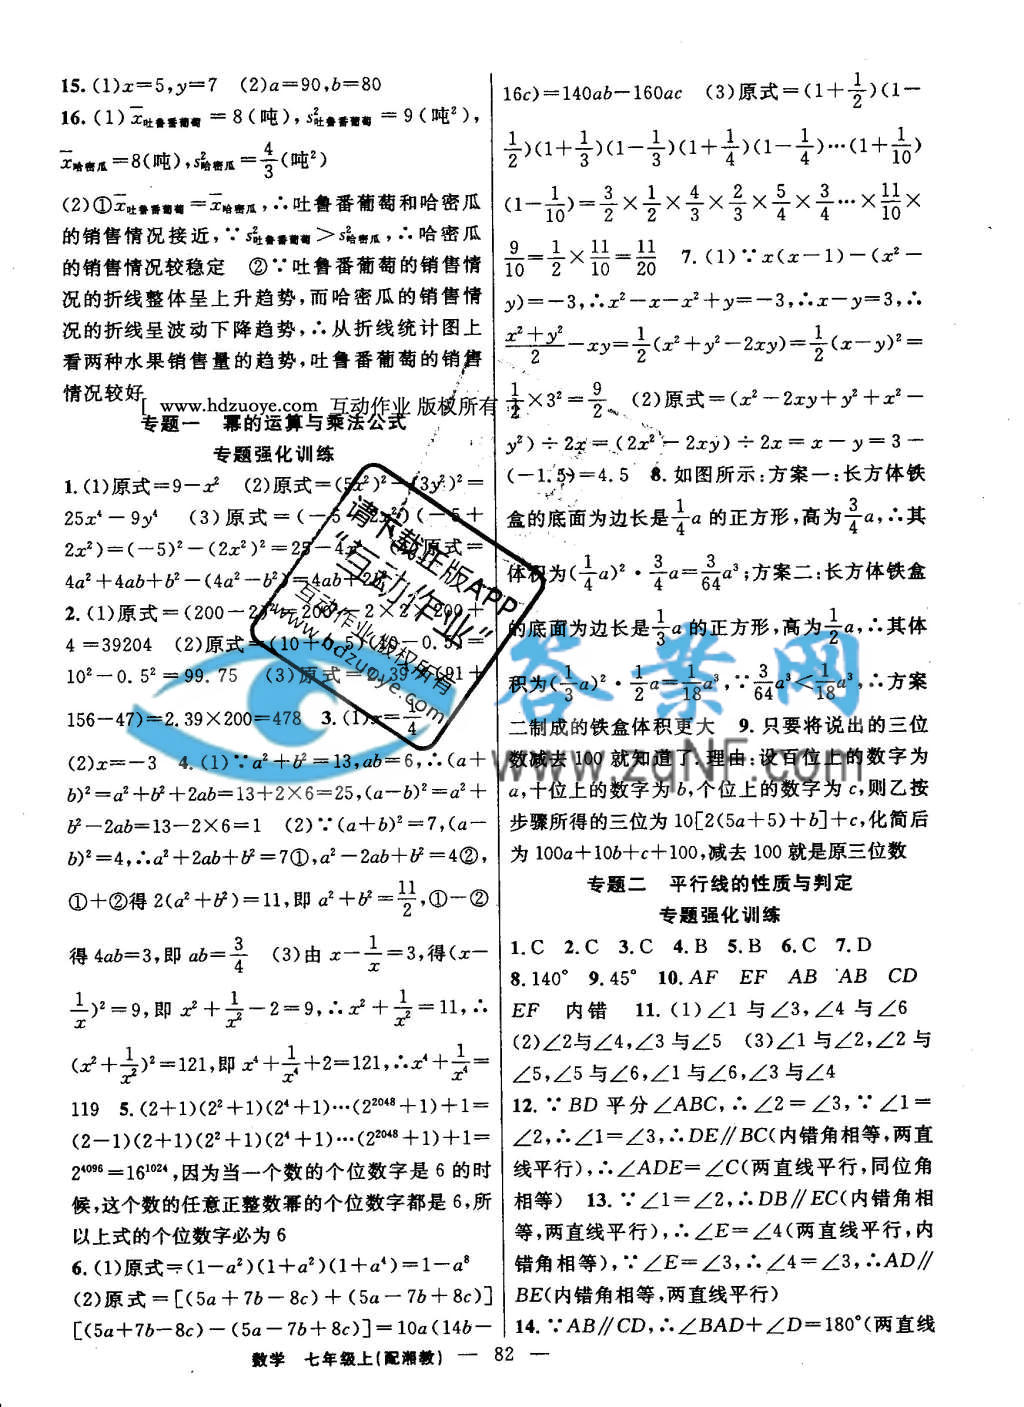 15. (1)x=5,y=7 (2)a=90,b=80
16. (1) x̄吐鲁番葡萄=8(吨),s²吐鲁番葡萄=9(吨²),
x̄哈密瓜=8(吨),s²哈密瓜=4/3(吨²)
(2)①x̄吐鲁番葡萄=x̄哈密瓜,∴吐鲁番葡萄和哈密瓜
的销售情况接近,∵s²吐鲁番葡萄>s²哈密瓜,∴哈密瓜
的销售情况较稳定 ②∵吐鲁番葡萄的销售情
况的折线整体呈上升趋势,而哈密瓜的销售情
况的折线呈波动下降趋势,∴从折线统计图上
看两种水果销售量的趋势,吐鲁番葡萄的销售
情况较好
www.hdzuoye.com 互动作业 版权所有
专题一 幂的运算与乘法公式
专题强化训练
1. (1)原式=9-x² (2)原式=(5x²)²-(3y²)²=
25x⁴-9y⁴ (3)原式=(-5-2x²)(-5+
2x²)=(-5)²-(2x²)²=25-4x⁴ 原式=
4a²+4ab+b²-(4a²-b²)=4ab+2b²
2. (1)原式=(200-2)²=200²-2×2×200+
4=39204 (2)原式=(10+0.5)(10-0.5)=
10²-0.5²=99.75 (3)原式=2.39×(91+
156-47)=2.39×200=478 3. (1)x=1/4
(2)x=-3 4. (1)∵a²+b²=13,ab=6,∴(a+
b)²=a²+b²+2ab=13+2×6=25,(a-b)²=a²+
b²-2ab=13-2×6=1 (2)∵(a+b)²=7,(a-
b)²=4,∴a²+2ab+b²=7①,a²-2ab+b²=4②,
①+②得2(a²+b²)=11,即a²+b²=11/2,①-②
得4ab=3,即ab=3/4 (3)由x-1/x=3,得(x-
1/x)²=9,即x²+1/x²-2=9,∴x²+1/x²=11,∴
(x²+1/x²)²=121,即x⁴+1/x⁴+2=121,∴x⁴+1/x⁴=
119 5. (2+1)(2²+1)(2⁴+1)…(2²⁰⁴⁸+1)+1=
(2-1)(2+1)(2²+1)(2⁴+1)…(2²⁰⁴⁸+1)+1=
2⁴⁰⁹⁶=16¹⁰²⁴,因为当一个数的个位数字是6的时
候,这个数的任意正整数幂的个位数字都是6,所
以上式的个位数字必为6
6. (1)原式=(1-a²)(1+a²)(1+a⁴)=1-a⁸
(2)原式=[(5a+7b-8c)+(5a-7b+8c)]
[(5a+7b-8c)-(5a-7b+8c)]=10a(14b-
16c)=140ab-160ac (3)原式=(1+1/2)(1-
1/2)(1+1/3)(1-1/3)(1+1/4)(1-1/4)…(1+1/10)
(1-1/10)=3/2×1/2×4/3×2/3×5/4×3/4…×11/10×
9/10=1/2×11/10=11/20 7. (1)∵x(x-1)-(x²-
y)=-3,∴x²-x-x²+y=-3,∴x-y=3,∴
(x²+y²)/2-xy=1/2(x²+y²-2xy)=1/2(x-y)²=
1/2×3²=9/2 (2)原式=(x²-2xy+y²+x²-
y²)÷2x=(2x²-2xy)÷2x=x-y=3-
(-1.5)=4.5 8. 如图所示:方案一:长方体铁
盒的底面为边长是1/4a的正方形,高为3/4a,∴其
体积为(1/4a)²·3/4a=3/64a³;方案二:长方体铁盒
的底面为边长是1/3a的正方形,高为1/2a,∴其体
积为(1/3a)²·1/2a=1/18a³,∵3/64a³<1/18a³,∴方案
二制成的铁盒体积更大 9. 只要将说出的三位
数减去100就知道了.理由:设百位上的数字为
a,十位上的数字为b,个位上的数字为c,则乙按
步骤所得的三位为10[2(5a+5)+b]+c,化简后
为100a+10b+c+100,减去100就是原三位数
专题二 平行线的性质与判定
专题强化训练
1. C 2. C 3. C 4. B 5. B 6. C 7. D
8. 140° 9. 45° 10. AF EF AB AB CD
EF 内错 11. (1)∠1与∠3,∠4与∠6
(2)∠2与∠4,∠3与∠5 (3)∠1与∠2,∠2与
∠5,∠5与∠6,∠1与∠6,∠3与∠4
12. ∵BD平分∠ABC,∴∠2=∠3,∵∠1=
∠2,∴∠1=∠3,∴DE∥BC(内错角相等,两直
线平行),∴∠ADE=∠C(两直线平行,同位角
相等) 13. ∵∠1=∠2,∴DB∥EC(内错角相
等,两直线平行),∴∠E=∠4(两直线平行,内
错角相等),∵∠E=∠3,∴∠4=∠3,∴AD∥
BE(内错角相等,两直线平行)
14. ∵AB∥CD,∴∠BAD+∠D=180°(两直线
数学 七年级上(配湘教) — 82 —
请下载正版APP
“互动作业”
互动作业 版权所有
www.hdzuoye.com
答案网
www.zqNF.com